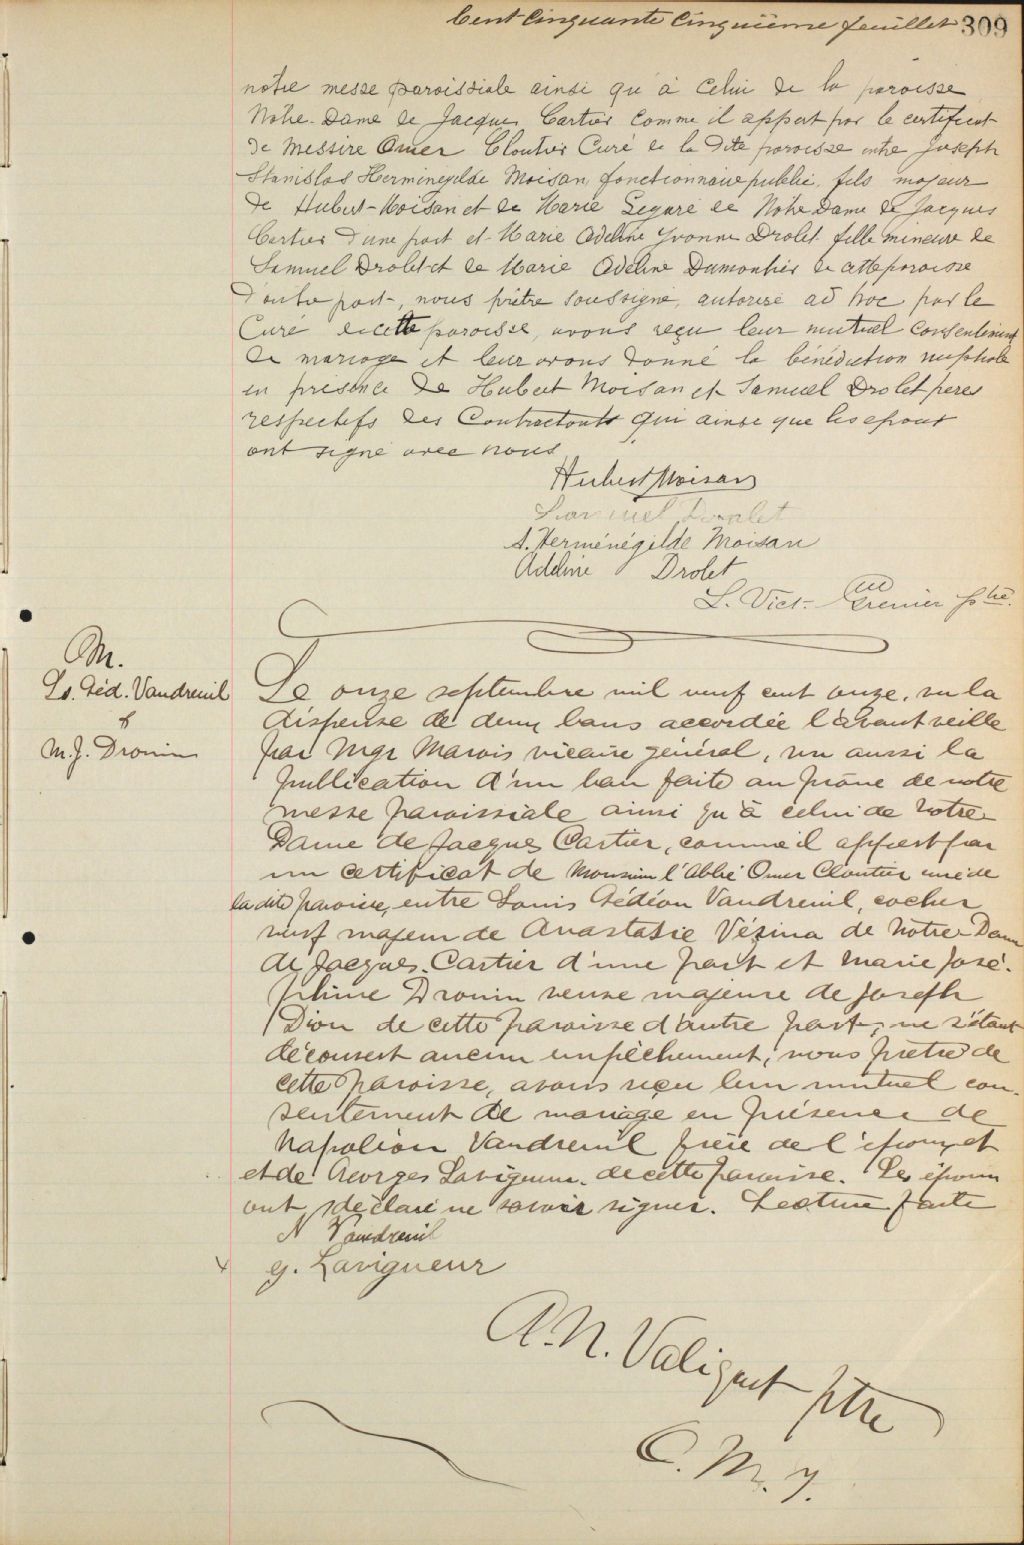 Cent cinquante cinquième feuillet 309
notre messe paroissiale ainsi qu'à celui de la paroisse
Notre-Dame de Jacques Cartier comme il appert par le certificat
de Messire Omer Cloutier Curé de la dite paroisse entre Joseph
Stanislas Herminegilde Moisan, fonctionnaire public, fils majeur
de Hubert Moisan et de Marie Legaré de Notre Dame de Jacques
Cartier d'une part et Marie Adeline Yvonne Drolet fille mineure de
Samuel Drolet et de Marie Adeline Dumontier de cette paroisse
d'autre part, nous prêtre soussigné, autorisé ad hoc par le
Curé de cette paroisse, avons reçu leur mutuel consentement
de mariage et leur avons donné la bénédiction nuptiale
en présence de Hubert Moisan et Samuel Drolet pères
respectifs des Contractants qui ainsi que les epoux
ont signé avec nous
Hubert Moisan
Samuel Drolet
S. Herménégilde Moisan
Adeline Drolet
L. Vict. Grenier ptre.
M.
Ls. Géd. Vaudreuil
&
M. J. Drouin
Le onze septembre mil neuf cent onze, vu la
dispense de deux bans accordée l'avant veille
par Mgr Marois vicaire général, vu aussi la
publication d'un ban faite au prône de notre
messe paroissiale ainsi qu'à celui de Notre-
Dame de Jacques Cartier, comme il appert par
un certificat de Monsieur l'Abbé Omer Cloutier curé de
la dite paroisse, entre Louis Gédéon Vaudreuil, cocher
veuf majeur de Anastasie Vézina de Notre-Dame
de Jacques-Cartier d'une part et Marie José-
phine Drouin veuve majeure de Joseph
Dion de cette paroisse d'autre part, ne s'étant
découvert aucun empêchement, nous prêtre de
cette paroisse, avons reçu leur mutuel con-
sentement de mariage en présence de
Napoléon Vaudreuil frère de l'époux et
et de Georges Lavigueur de cette paroisse. Les époux
ont déclaré ne savoir signer. Lecture faite
N Vaudreuil
g. Lavigueur
A. N. Valiquet ptre